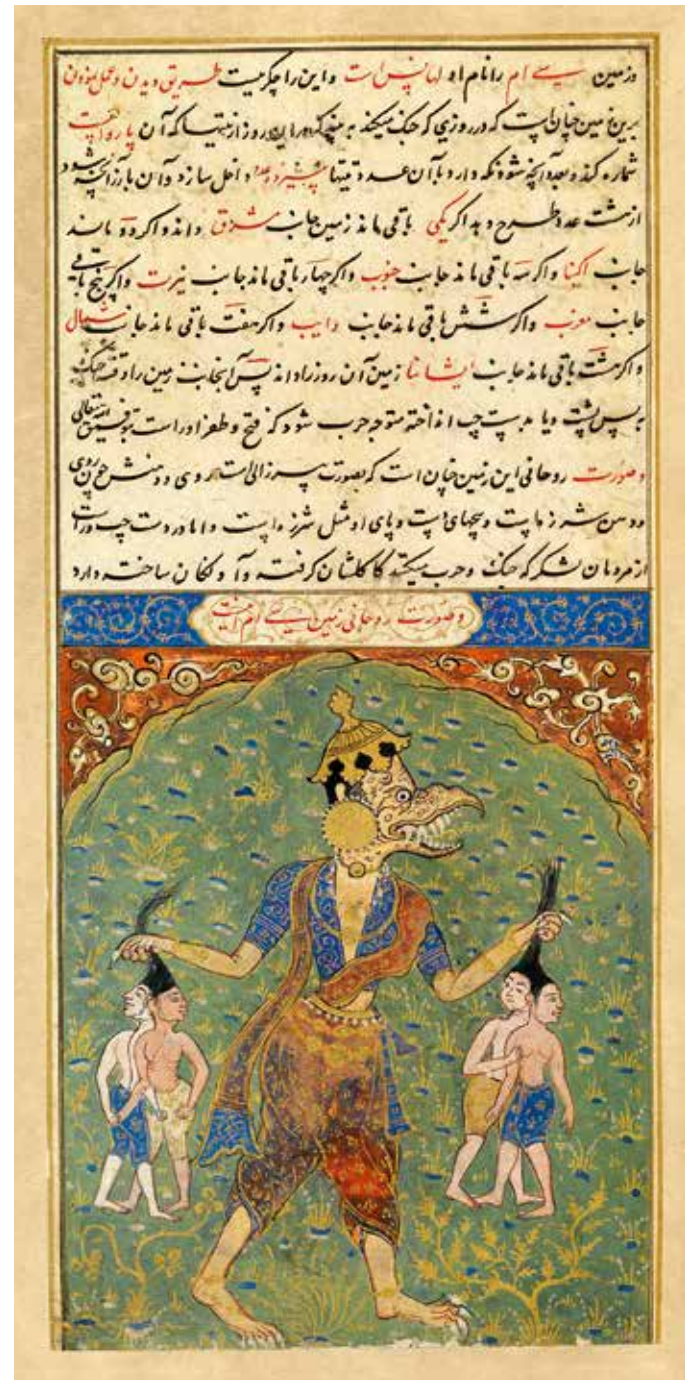 وزمین سی ام را نام او است و این را چکر میت طریق دیدن و عمل نمودن
برین زمین چنان است که در روزی که جنک میکند به بیند که این روز از تیتها که آن
شماره کند و بعد آنچه شود نکه دارد با آن عدد تیتها داخل سازد و آن
از هشت عدد طرح دهد اکر یکی باقی ماند زمین جانب مشرق داند و اکر دو ماند
جانب اکینا و اکر سه باقی ماند جانب جنوب و اکر چهار باقی ماند جانب نیرت و اکر پنج باقی
جانب مغرب و اکر شش باقی ماند جانب وایب و اکر هفت باقی ماند جانب شمال
و اکر هشت باقی ماند جانب ایشانا زمین آن روز را داند پس آنجانب زمین را وقت جنک
به پس پشت و یا بدست چپ انداخته متوجه حرب شود که فتح و ظفر او راست بتوفیق الله تعالی
و صورت روحانی این زمین چنان است که بصورت پیر زالی است روی و دهنش چون روی
و دهن و پنجهای دست و پای او مثل است و اما در دست چپ و راست
از مردمان لشکر که جنک و حرب میکنند کاکلشان کرفته و آونکان ساخته دارد
و صورت روحانی زمین سی ام اینست